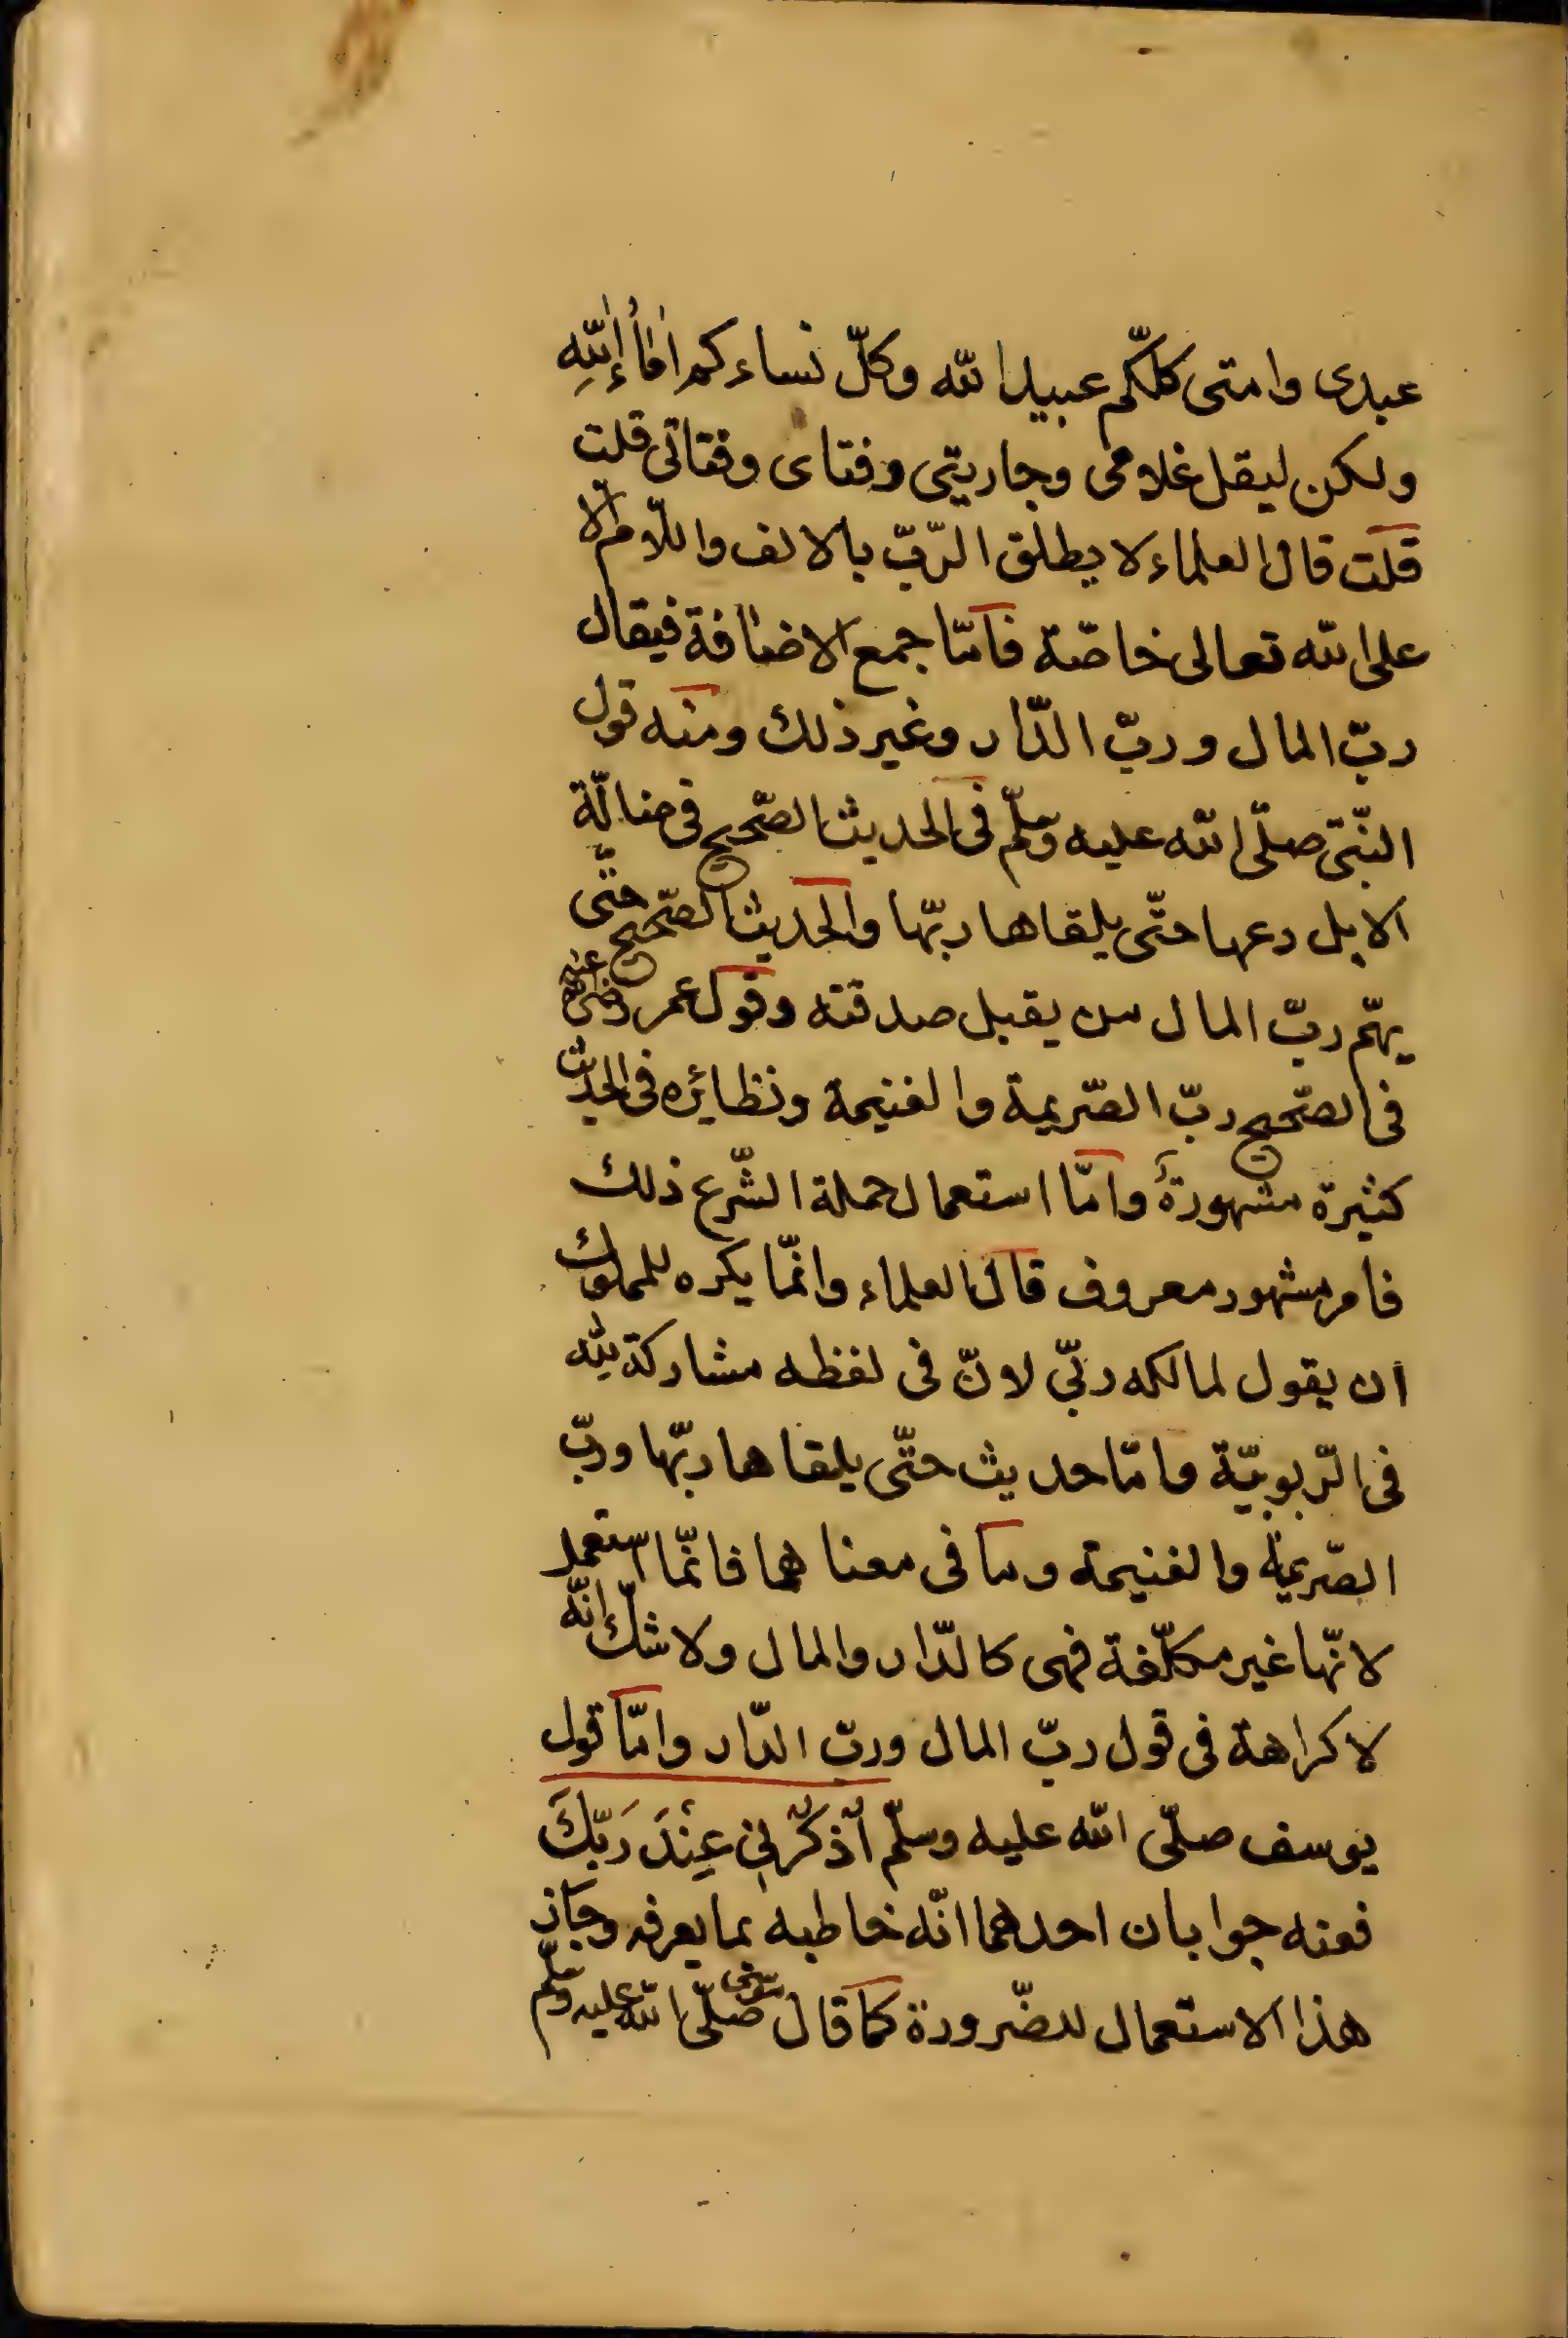 عبدى وامتى كلّكم عبيد الله وكلّ نساءكم اماء الله
ولكن ليقل غلامى وجاريتى وفتاى وفتاتى قلت
قلت قال العلماء لا يطلق الرّبّ بالالف واللّام الّا
على الله تعالى خاصّة فامّا جمع الاضافة فيقال
ربّ المال وربّ الدّار وغير ذلك ومنه قول
النّبىّ صلّى الله عليه وسلّم فى الحديث الصّحيح فى ضالّة
الابل دعها حتّى يلقاها ربّها والحديث الصّحيح حتّى
يهمّ ربّ المال من يقبل صدقته وقول عمر رضى الله عنه
فى الصّحيح ربّ الصّريمة والغنيمة ونظائره فى الحديث
كثيرة مشهورة وامّا استعمال حملة الشّرع ذلك
فامر مشهور معروف قال العلماء وانّما يكره للمملوك
ان يقول لمالكه ربّى لانّ فى لفظه مشاركة لله
فى الرّبوبيّة وامّا حديث حتّى يلقاها ربّها وربّ
الصّريمة والغنيمة وما فى معناهما فانّما استعمل
لانّها غير مكلّفة فهى كالدّار والمال ولا شكّ انّه
لا كراهة فى قول ربّ المال وربّ الدّار وامّا قول
يوسف صلّى الله عليه وسلّم اُذْكُرْنِى عِنْدَ رَبِّكَ
فعنه جوابان احدهما انّه خاطبه بما يعرفه وجاز
هذا الاستعمال للضّرورة كما قال موسى صلّى الله عليه وسلّم